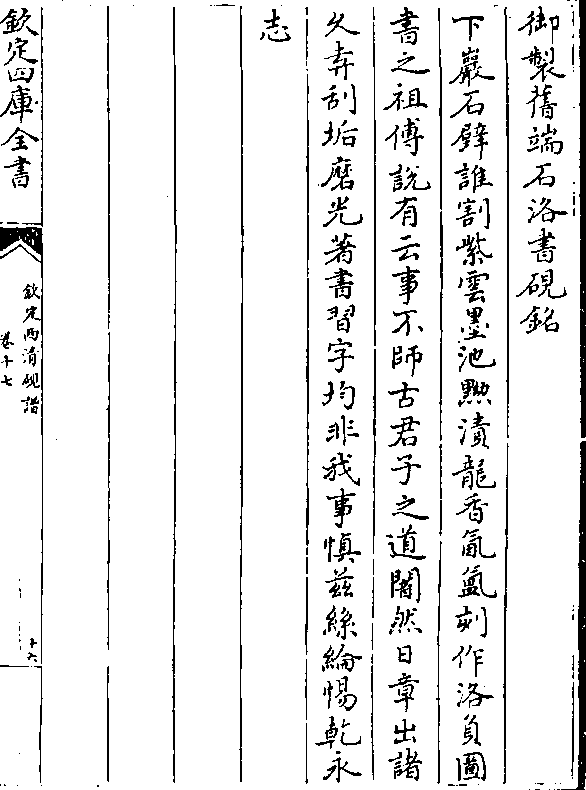 御製舊端石洛書硯銘
下巖石壁誰割紫雲墨池黝漬龍香氤氳刻作洛負圖
書之祖傅說有云事不師古君子之道闇然日章出諸
久弆刮垢磨光著書習字均非我事慎茲絲綸惕乾永
志
欽定四庫全書
欽定西清硯譜
卷十七
十六